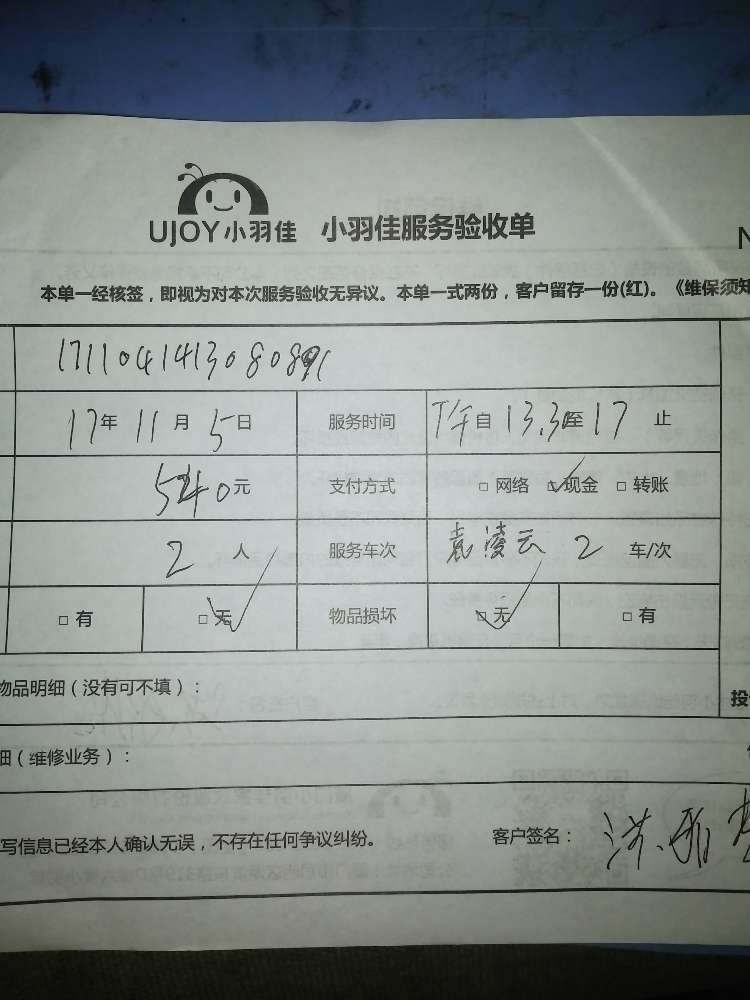 UJOY小羽佳 小羽佳服务验收单
N
本单一经核签，即视为对本次服务验收无异议。本单一式两份，客户留存一份(红)。《维保须知
17年 11月 5日 服务时间 下午自 13.30至 17 止
540元 支付方式 □ 网络 □ 现金 □ 转账
2 人 服务车次 袁凌云 2 车/次
□ 有 □ 无 物品损坏 □ 无 □ 有
物品明细（没有可不填）：
投
细（维修业务）：
写信息已经本人确认无误，不存在任何争议纠纷。 客户签名： 洪雅